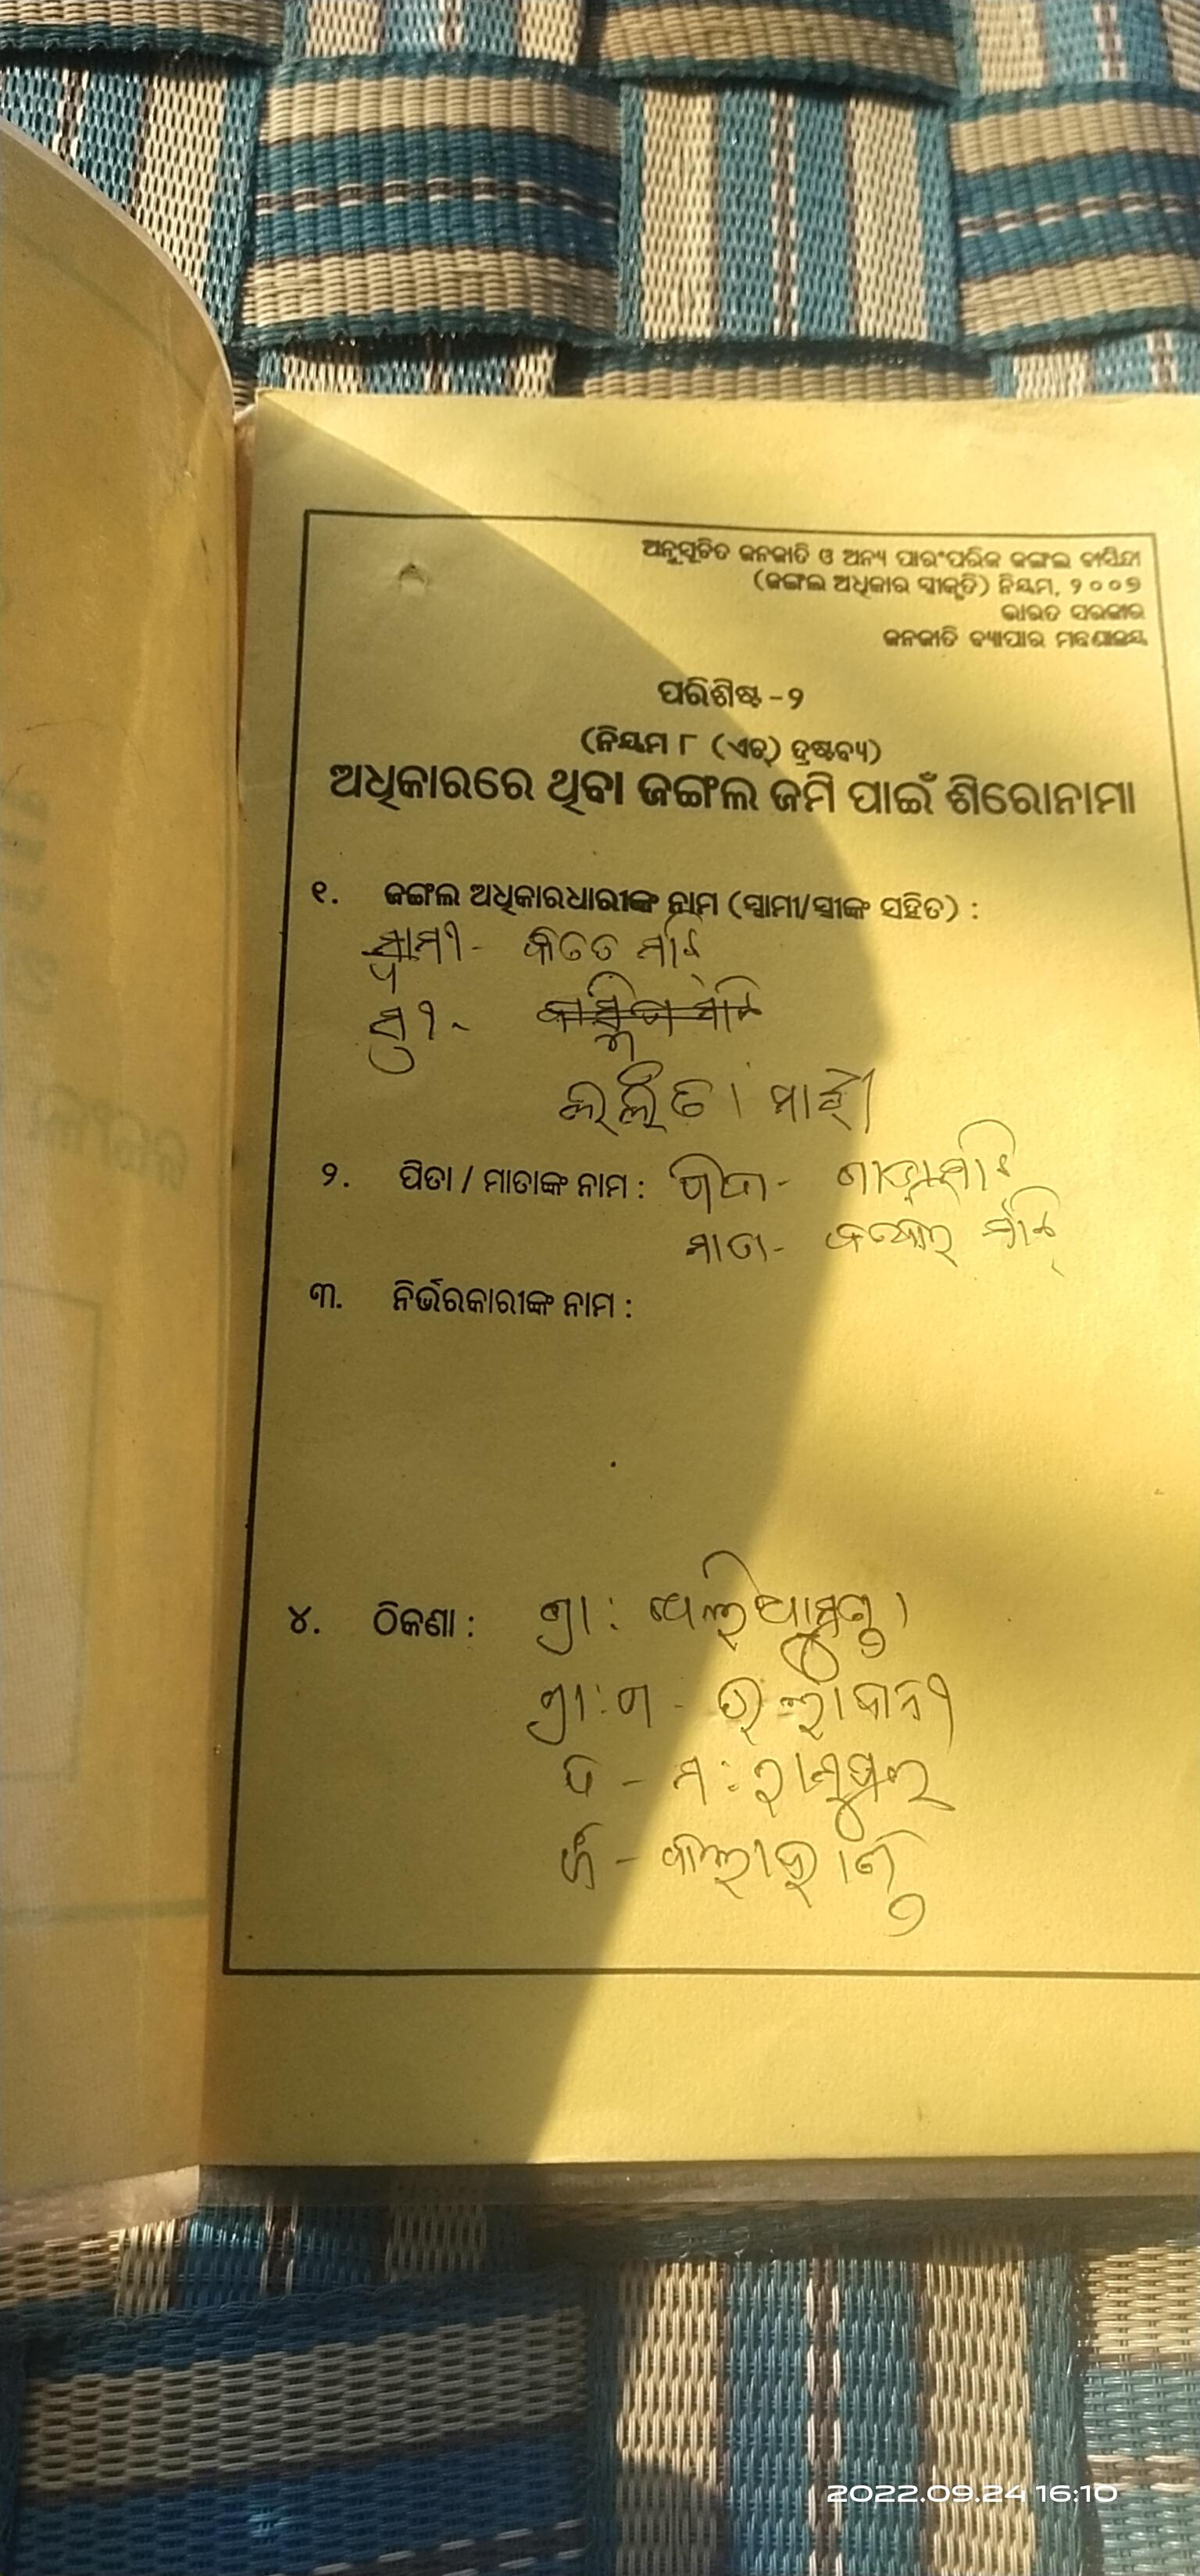 ଅନୁସୂଚିତ ଜନଜାତି ଓ ଅନ୍ୟ ପାରଂପରିକ ଜଙ୍ଗଲ ବାସିନ୍ଦା
(ଜଙ୍ଗଲ ଅଧିକାର ସ୍ୱୀକୃତି) ନିୟମ, ୨୦୦୭
ଭାରତ ସରକାର
ଜନଜାତି ବ୍ୟାପାର ମନ୍ତ୍ରଣାଳୟ
ପରିଶିଷ୍ଟ -୨
(ନିୟମ ୮ (ଏଚ୍) ଦ୍ରଷ୍ଟବ୍ୟ)
ଅଧିକାରରେ ଥିବା ଜଙ୍ଗଲ ଜମି ପାଇଁ ଶିରୋନାମା
୧. ଜଙ୍ଗଲ ଅଧିକାରଧାରୀଙ୍କ ନାମ (ସ୍ୱାମୀ/ସ୍ତ୍ରୀଙ୍କ ସହିତ) :
ସ୍ୱାମୀ - ମାଝି
ସ୍ତ୍ରୀ -
ଲଲିତା ମାଝୀ
୨. ପିତା / ମାତାଙ୍କ ନାମ : ପିତା - ମାଝି
ମାତା - ମାଝି
୩. ନିର୍ଭରକାରୀଙ୍କ ନାମ :
୪. ଠିକଣା : ଗ୍ରା :
ଗ୍ରା:ପ -
ତ - ମ : ରାମପୁର
ଜି - କଳାହାଣ୍ଡି
2022.09.24 16:10